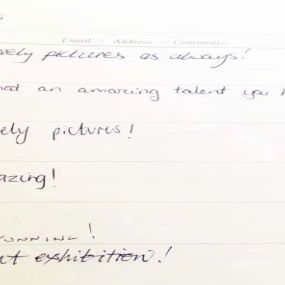 Email - Address - Comments
vely pictures as always!
hat an amazing talent you h
ely pictures!
azing!
UNNING!
at exhibition!